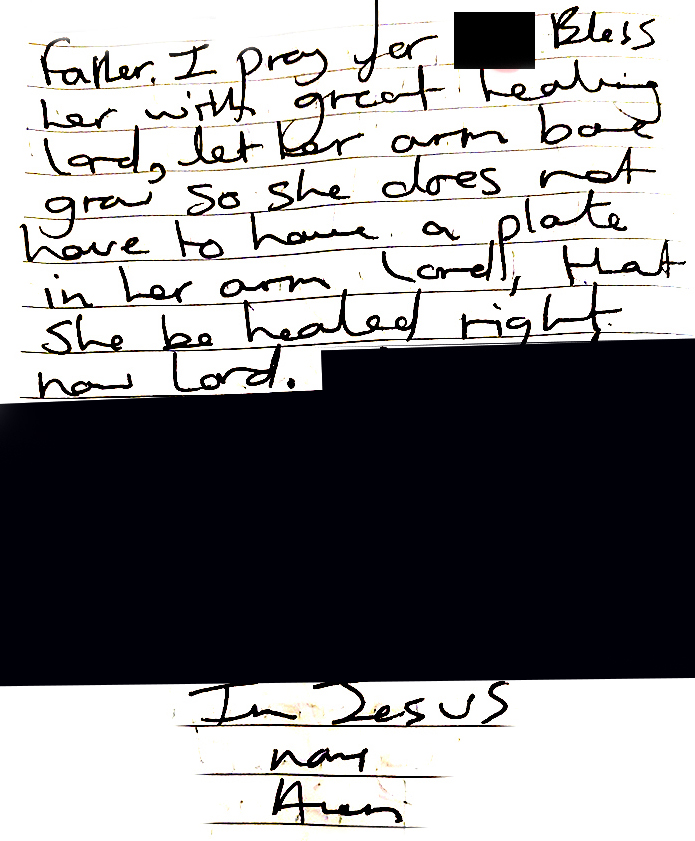 Father. I pray for Bless
her with great healing
Lord, let her arm bone
grow so she does not
have to have a plate
in her arm Lord, that
she be healed right
now Lord.
In Jesus
name
Amen